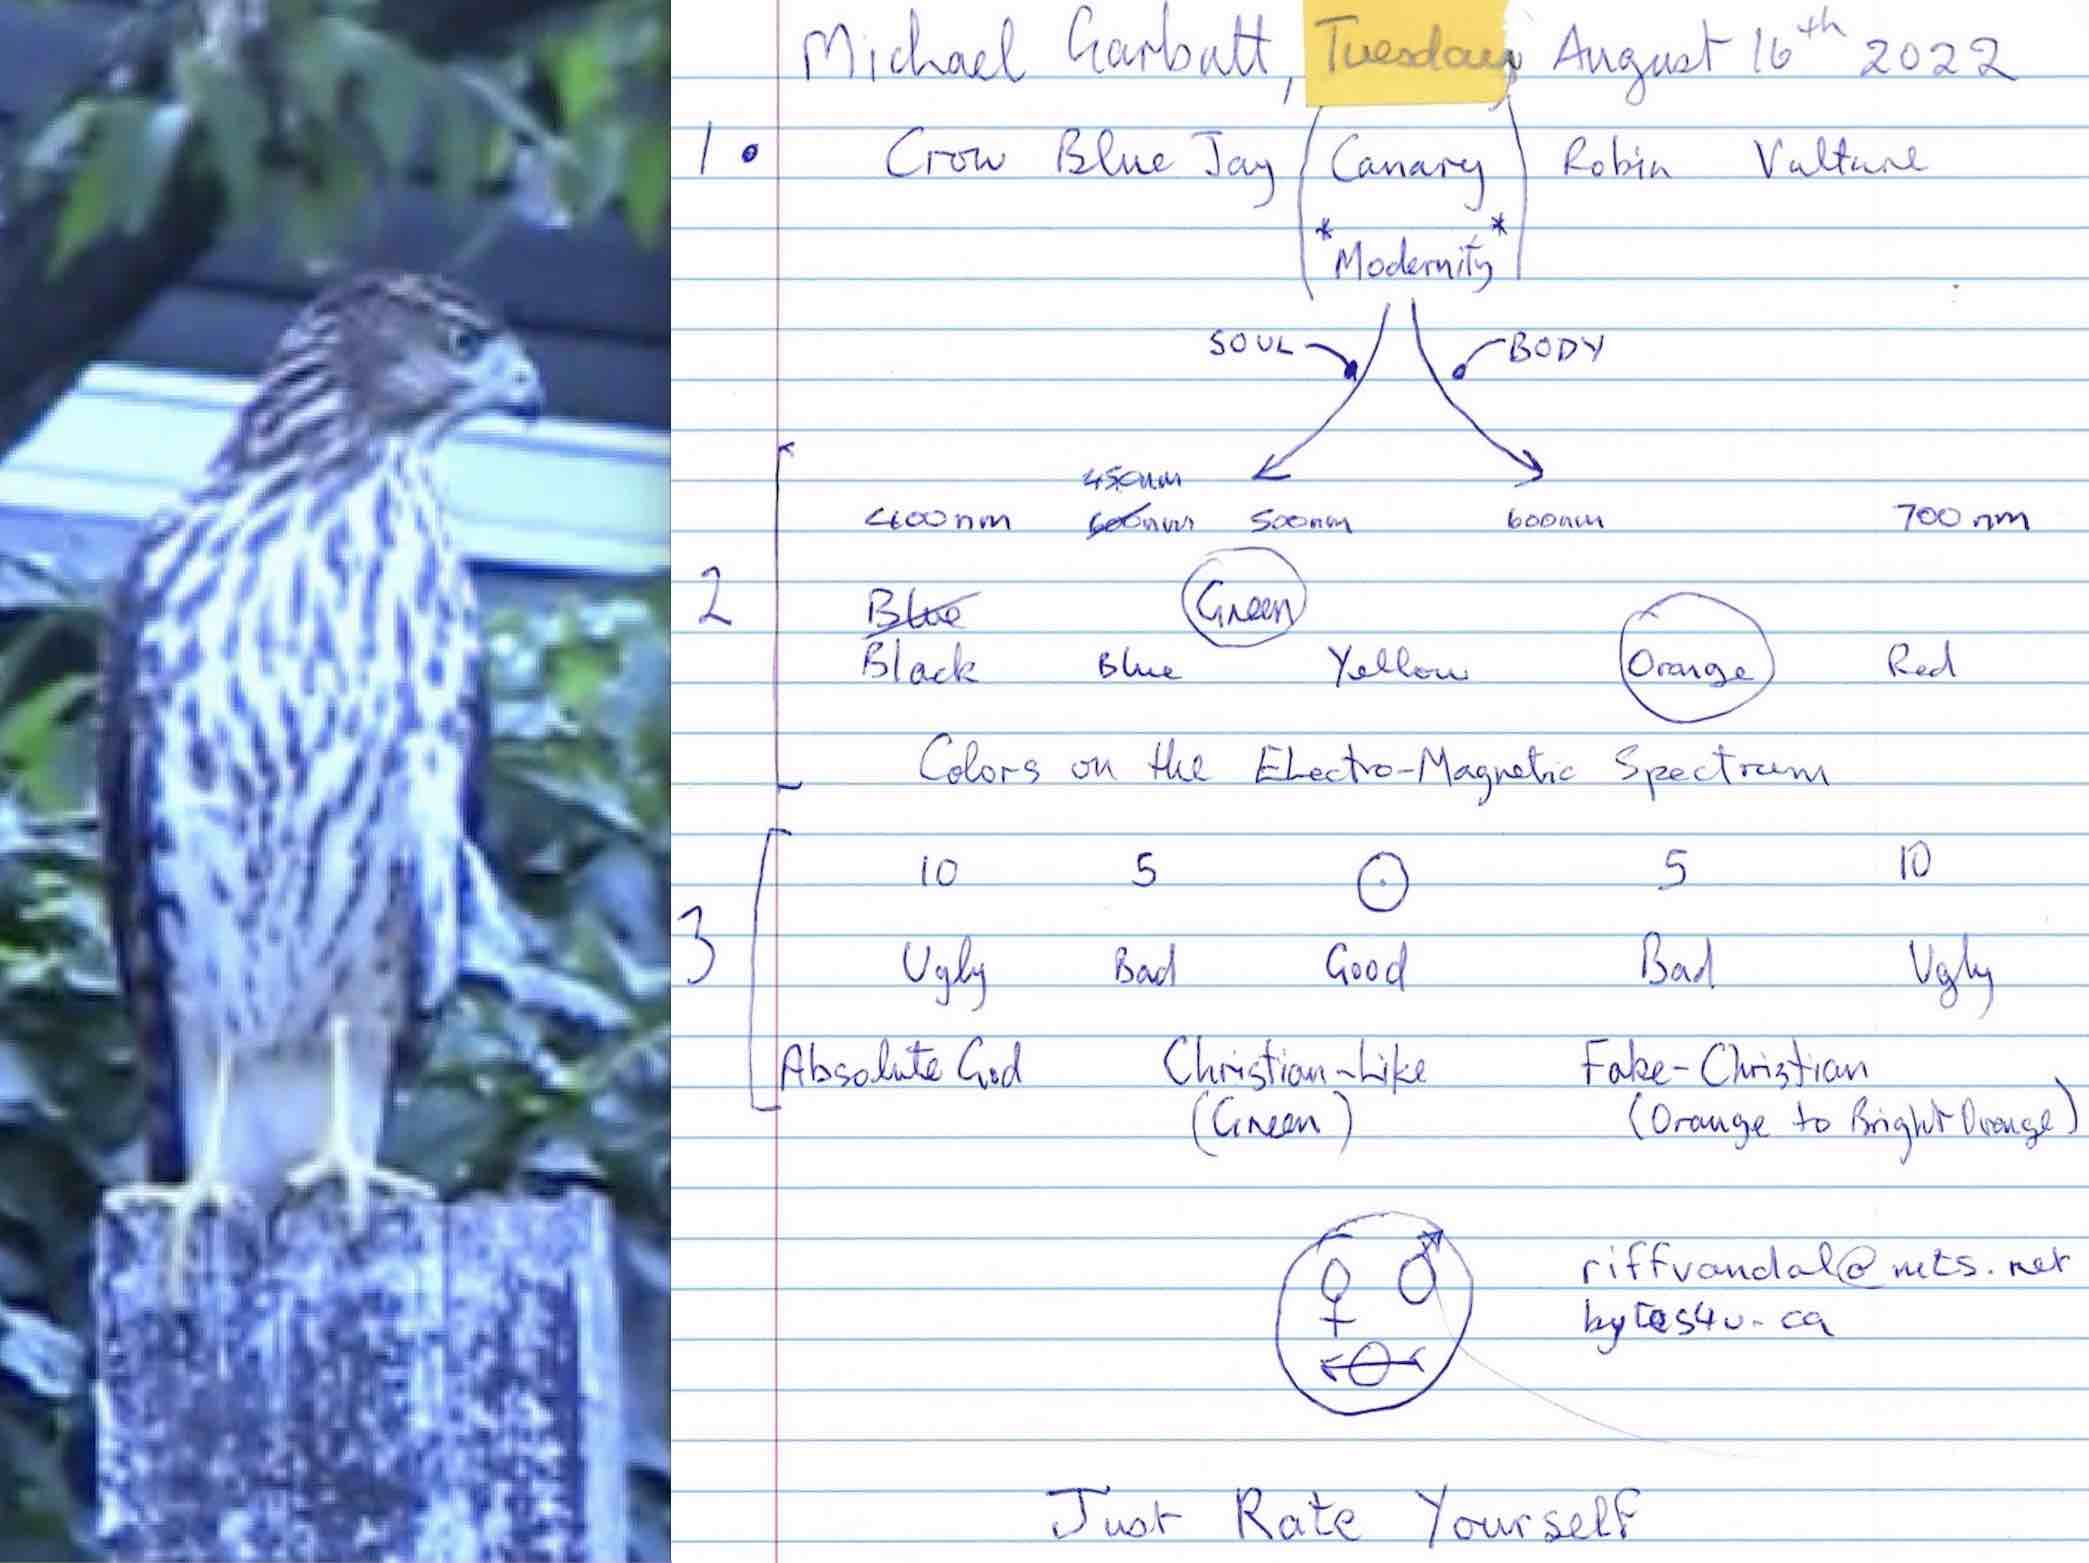 Michael Garbutt, Tuesday August 16th 2022
1. Crow Blue Jay (Canary) Robin Vulture
*Modernity*
SOUL BODY
450nm
400nm 600nm 500nm 600nm 700nm
2
Blue Green
Black Blue Yellow Orange Red
Colors on the Electro-Magnetic Spectrum
10 5 5 10
3
Ugly Bad Good Bad Ugly
Absolute God Christian-Like Fake-Christian
(Green) (Orange to Bright Orange)
riffvandal@mts.net
bytes4u.ca
Just Rate Yourself